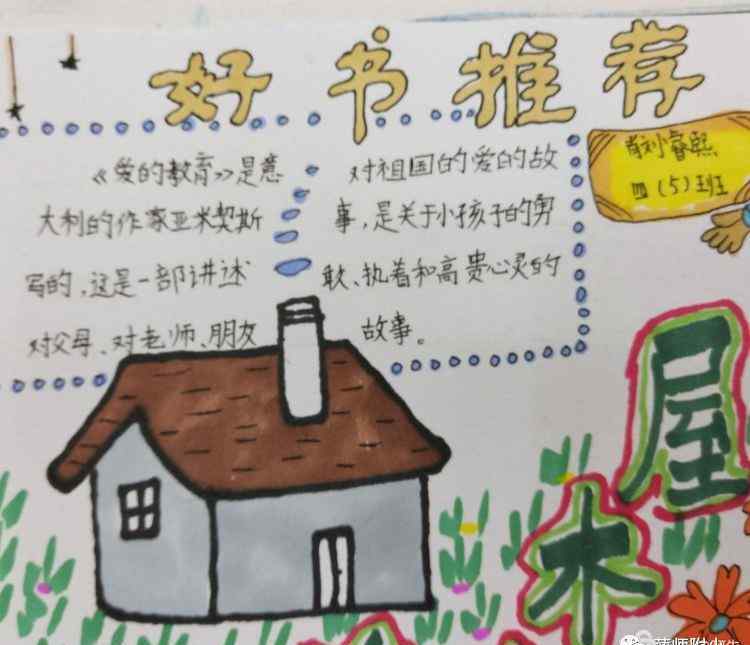 好书推荐
《爱的教育》是意
大利的作家亚米契斯
写的，这是一部讲述
对父母、对老师、朋友
对祖国的爱的故
事，是关于小孩子的勇
敢、执着和高贵心灵的
故事。
肖刘睿熙
四（5）班
屋
木